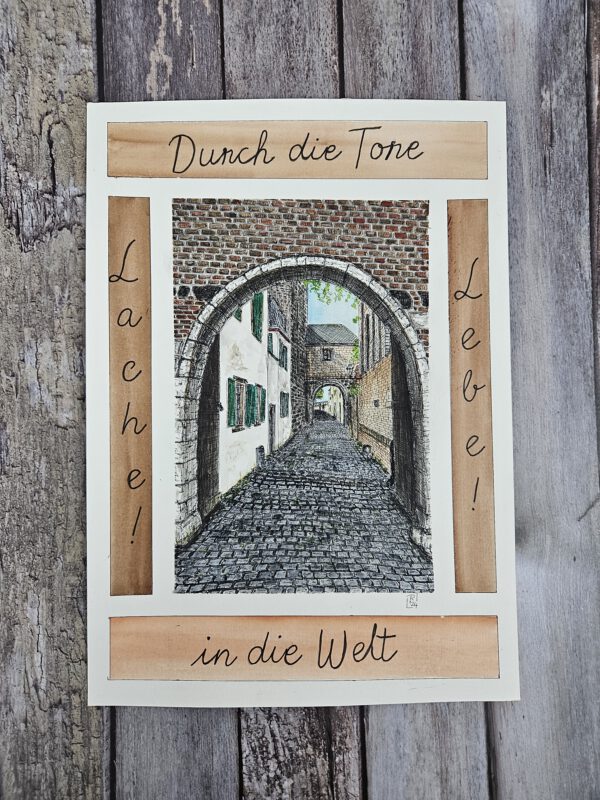 Durch die Tore
Lache!
Lebe!
in die Welt